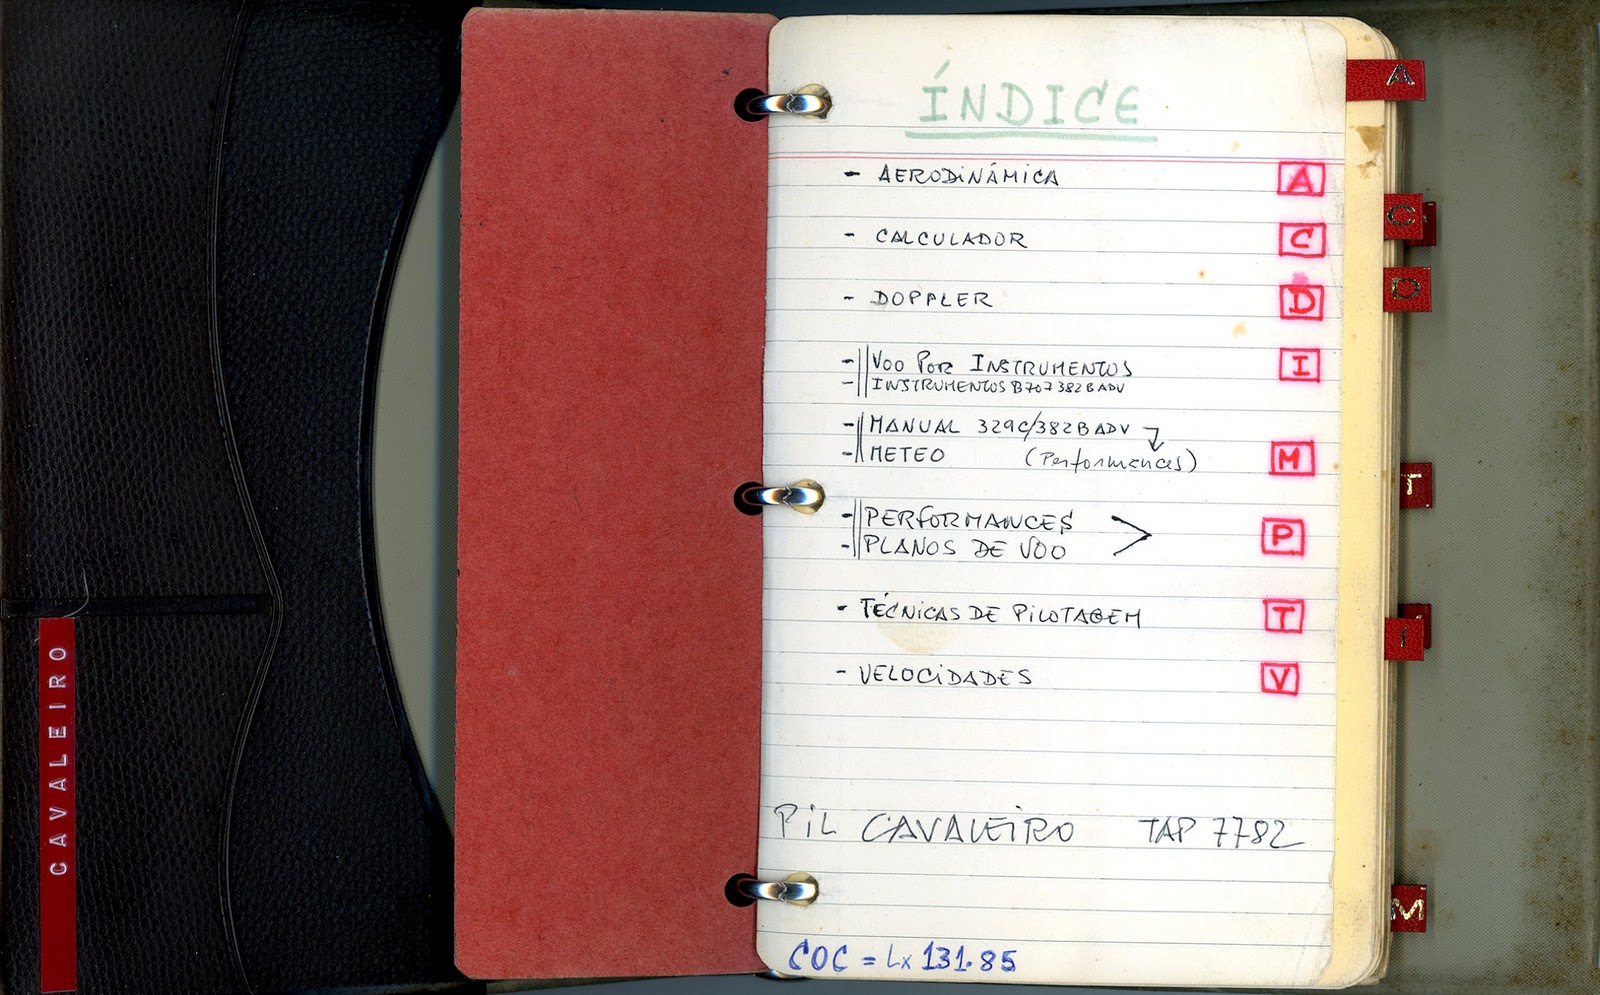 CAVALEIRO
ÍNDICE
- AERODINÁMICA A
- CALCULADOR C
- DOPPLER D
- VOO POR INSTRUMENTOS I
- INSTRUMENTOS B707 382B ADV
- MANUAL 329C/382B ADV
- METEO (Performances) M
- PERFORMANCES
- PLANOS DE VOO P
- TÉCNICAS DE PILOTAGEM T
- VELOCIDADES V
PIL CAVALEIRO TAP 7782
COC = Lx 131.85
A
C
D
T
I
M